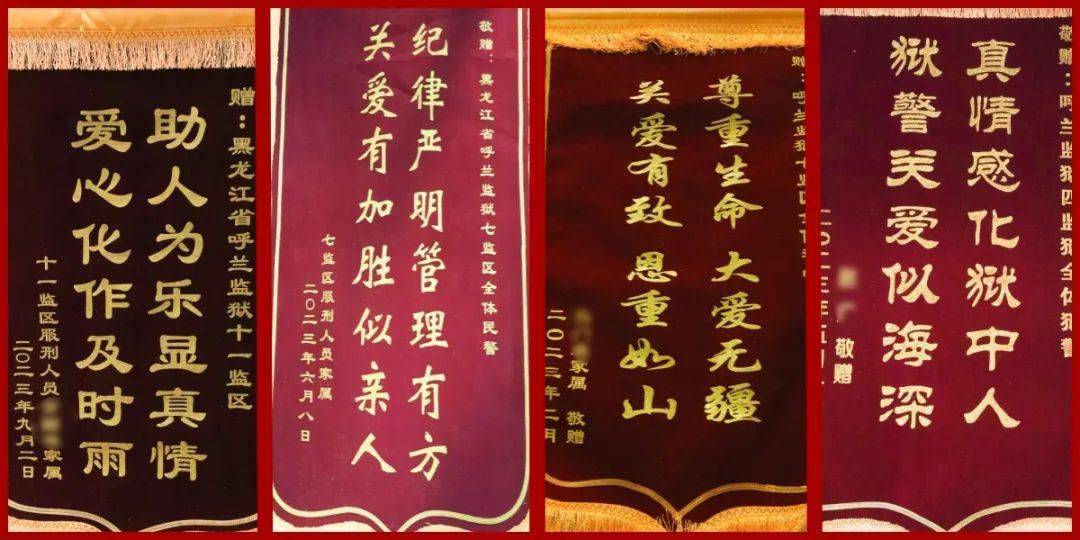 赠：黑龙江省呼兰监狱十一监区
助人为乐显真情
爱心化作及时雨
十一监区服刑人员 家属
二〇二三年九月二日
敬赠：黑龙江省呼兰监狱七监区全体民警
纪律严明管理有方
关爱有加胜似亲人
七监区服刑人员家属
二〇二三年六月八日
赠：呼兰监狱
尊重生命 大爱无疆
关爱有致 恩重如山
家属 敬赠
二〇二三年二月
敬赠：呼兰监狱四监狱全体狱警
真情感化狱中人
狱警关爱似海深
敬赠